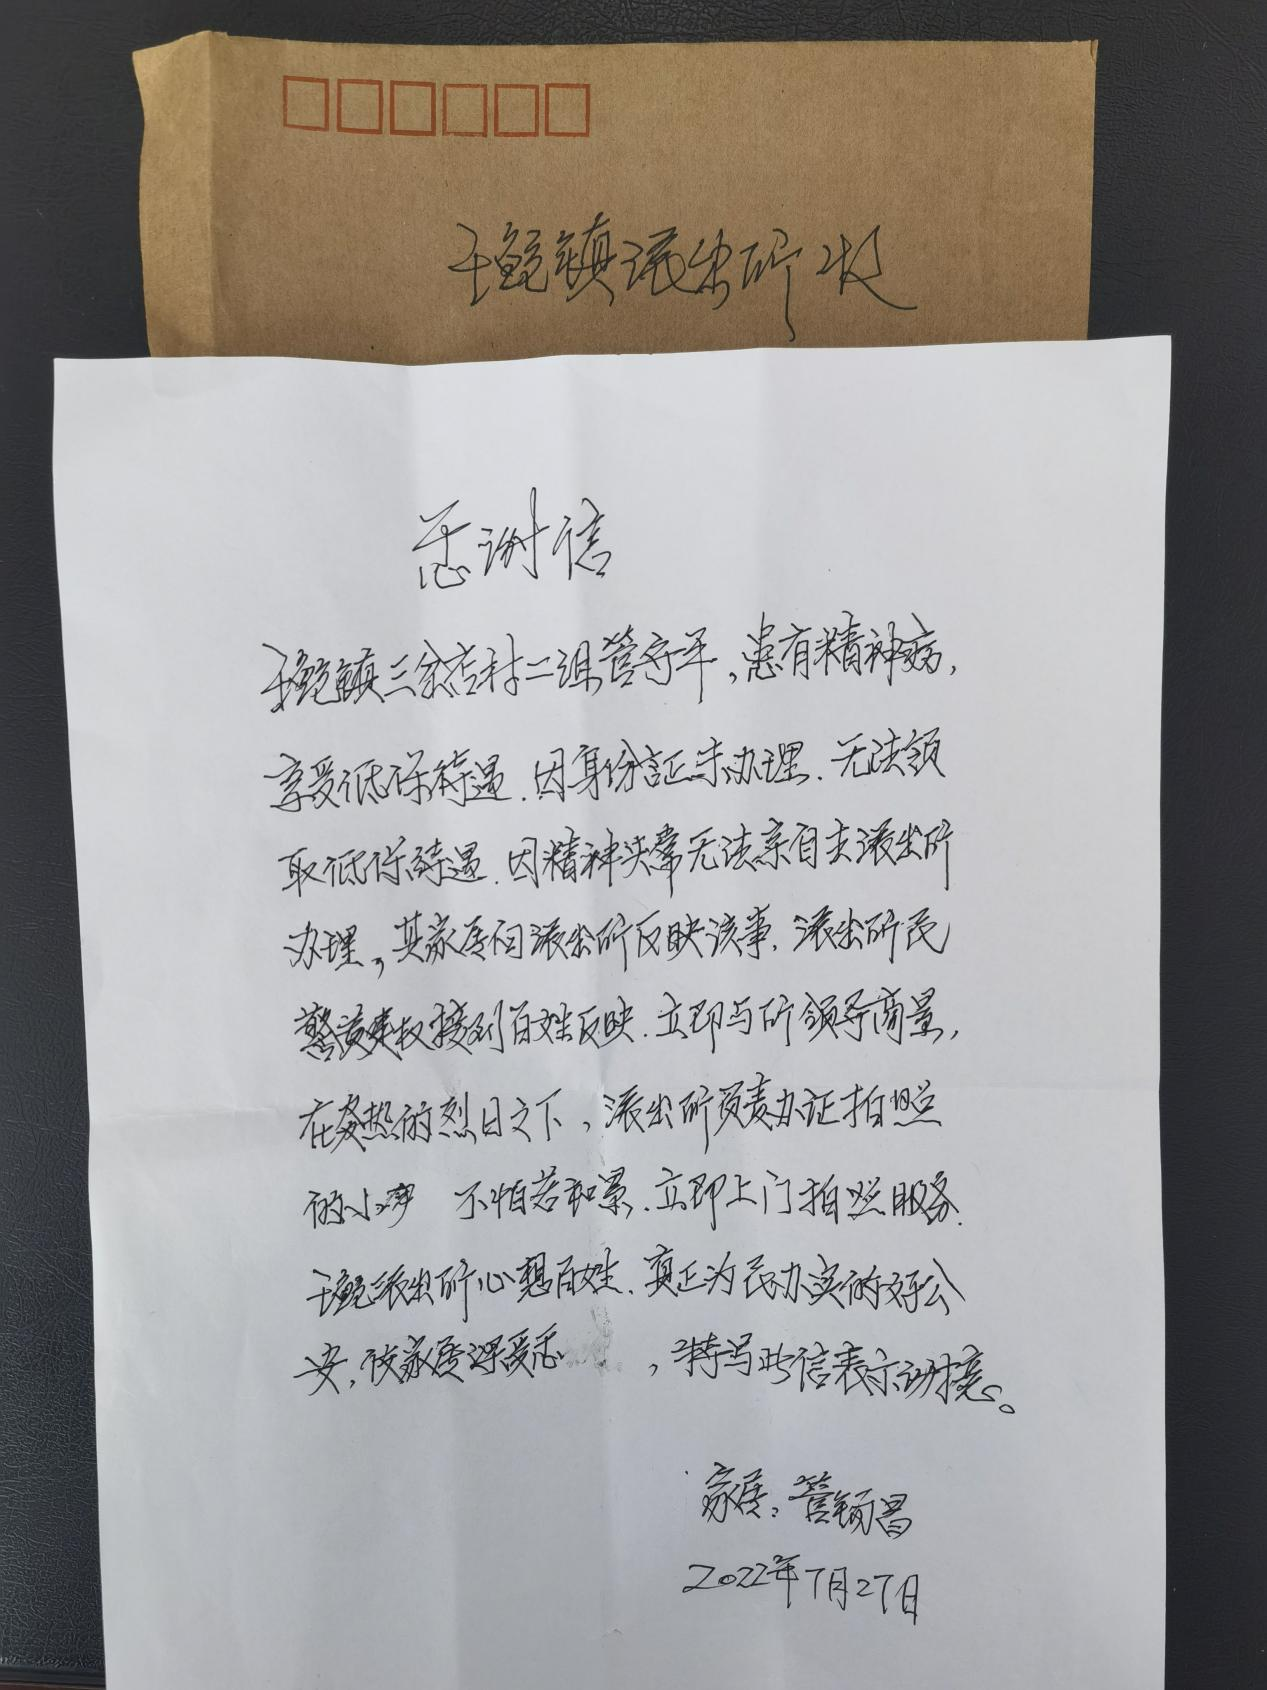 干镇派出所收
感谢信
镇三余店村二组管守平，患有精神病，
享受低保待遇.因身份証未办理.无法领
取低保待遇.因精神失常无法亲自去派出所
办理，其家属向派出所反映该事.派出所民
警黄建权接到百姓反映.立即与所领导商量，
在炎热的烈日之下，派出所负责办证拍照
的小 不怕苦和累.立即上门拍照服务.
派出所心想百姓.真正为民办实的好公
安，使家属深受感，特写此信表示谢意。
家属：管昌
2022年7月27日